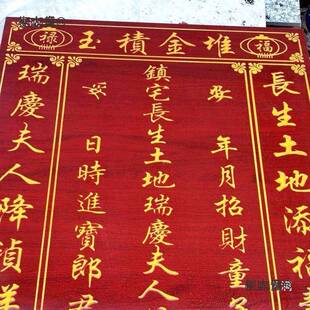 福 堆金積玉 祿
長生土地添福
安 年月招財童
鎮宅長生土地瑞慶夫人
安 日時進寶郎君
瑞慶夫人降禎祥